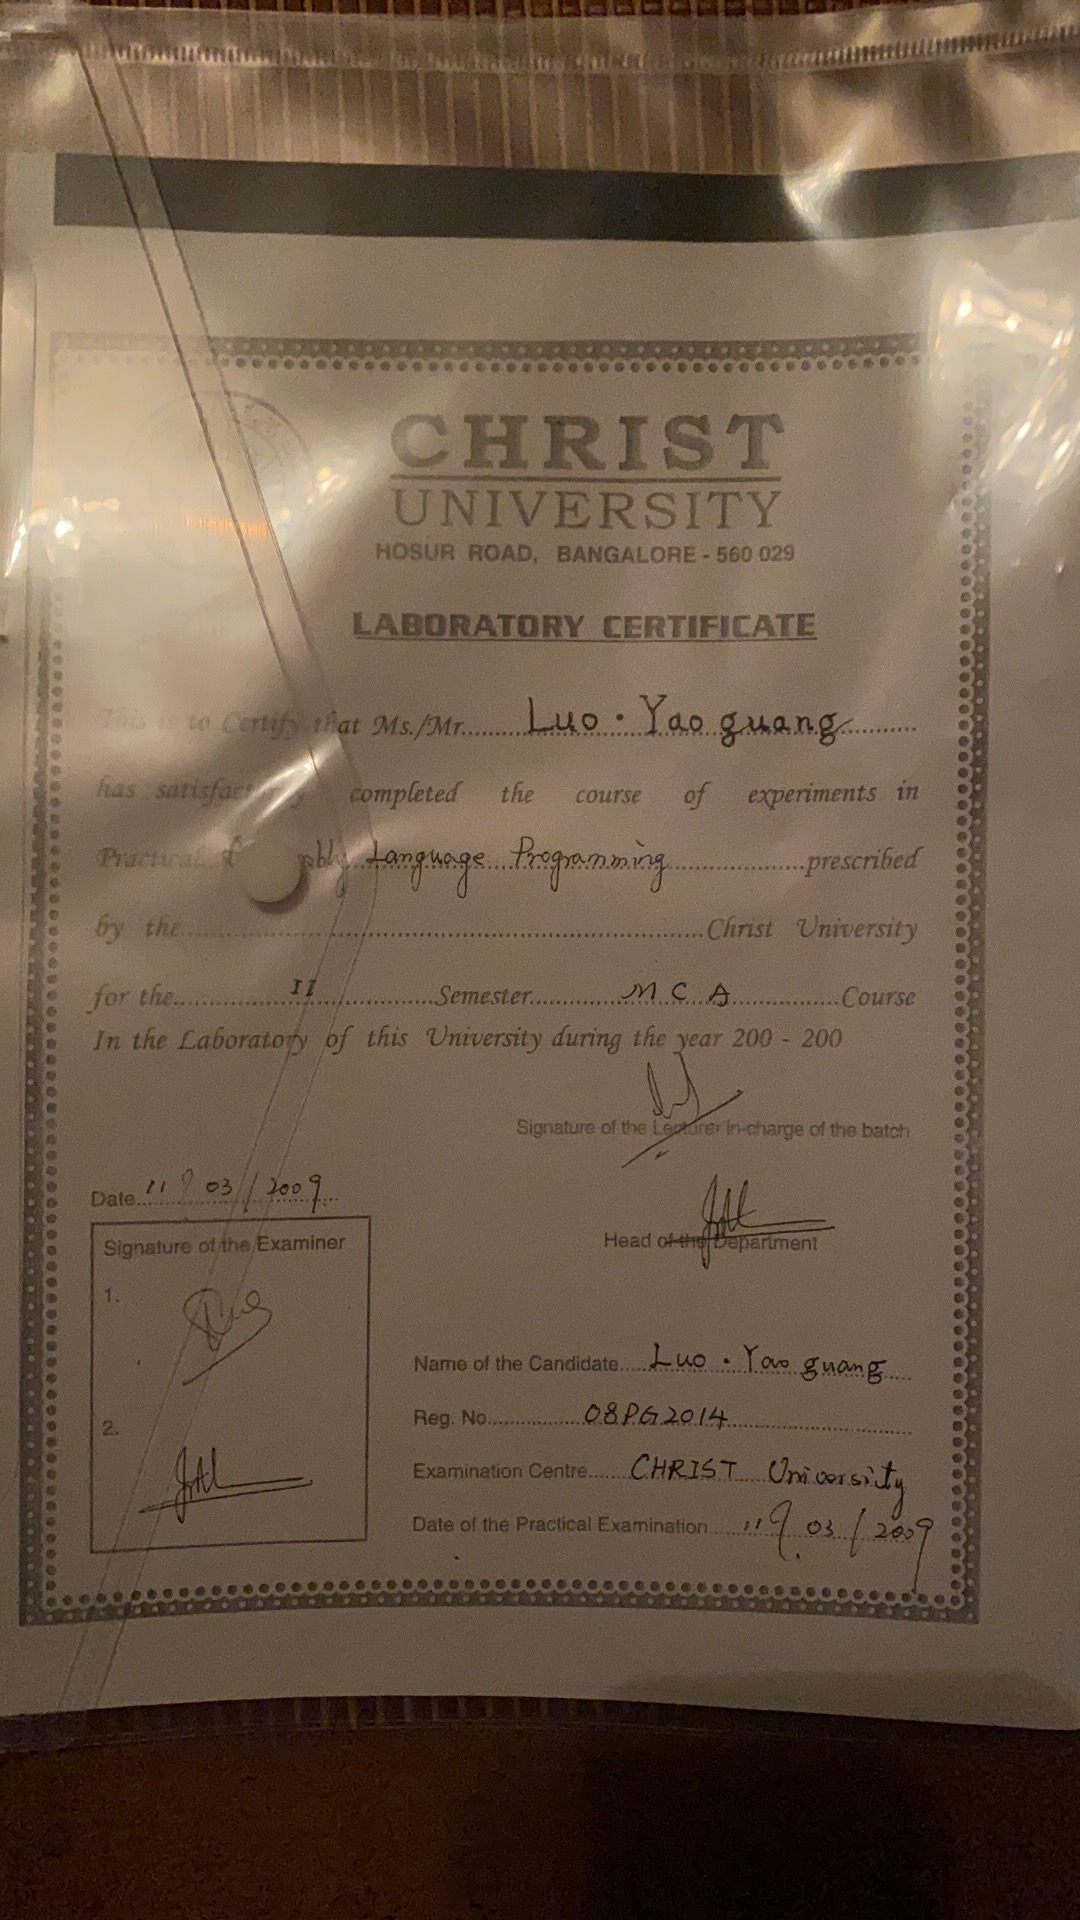 CHRIST
UNIVERSITY
HOSUR ROAD, BANGALORE - 560 029
LABORATORY CERTIFICATE
This is to Certify that Ms./Mr. Luo · Yao guang
has completed the course of experiments in
Practical Language Programming prescribed
by the Christ University
for the II Semester MCA Course
In the Laboratory of this University during the year 200 - 200
Signature of the Lecturer in-charge of the batch
Date 03/2009
Head of the Department
Signature of the Examiner
1.
2.
Name of the Candidate Luo · Yao guang
Reg. No. 08PG2014
Examination Centre CHRIST University
Date of the Practical Examination 03/2009